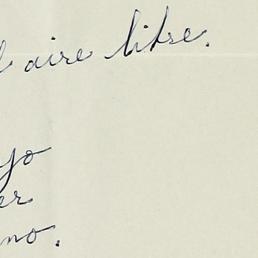 l aire libre.
yo
er
no.